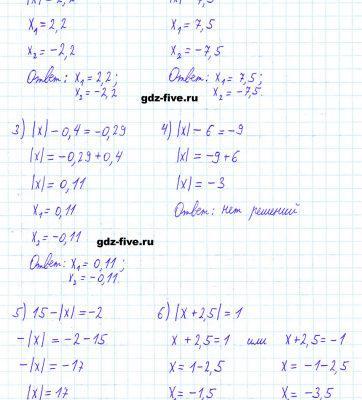 x₁ = 2,2
x₂ = -2,2
Ответ: x₁ = 2,2;
x₂ = -2,2
x₁ = 7,5
x₂ = -7,5
Ответ: x₁ = 7,5;
x₂ = -7,5.
gdz-five.ru
3) |x| - 0,4 = -0,29
|x| = -0,29 + 0,4
|x| = 0,11
x₁ = 0,11
x₂ = -0,11
Ответ: x₁ = 0,11;
x₂ = -0,11.
4) |x| - 6 = -9
|x| = -9 + 6
|x| = -3
Ответ: нет решений
gdz-five.ru
5) 15 - |x| = -2
-|x| = -2 - 15
-|x| = -17
|x| = 17
6) |x + 2,5| = 1
x + 2,5 = 1 или x + 2,5 = -1
x = 1 - 2,5 x = -1 - 2,5
x = -1,5 x = -3,5